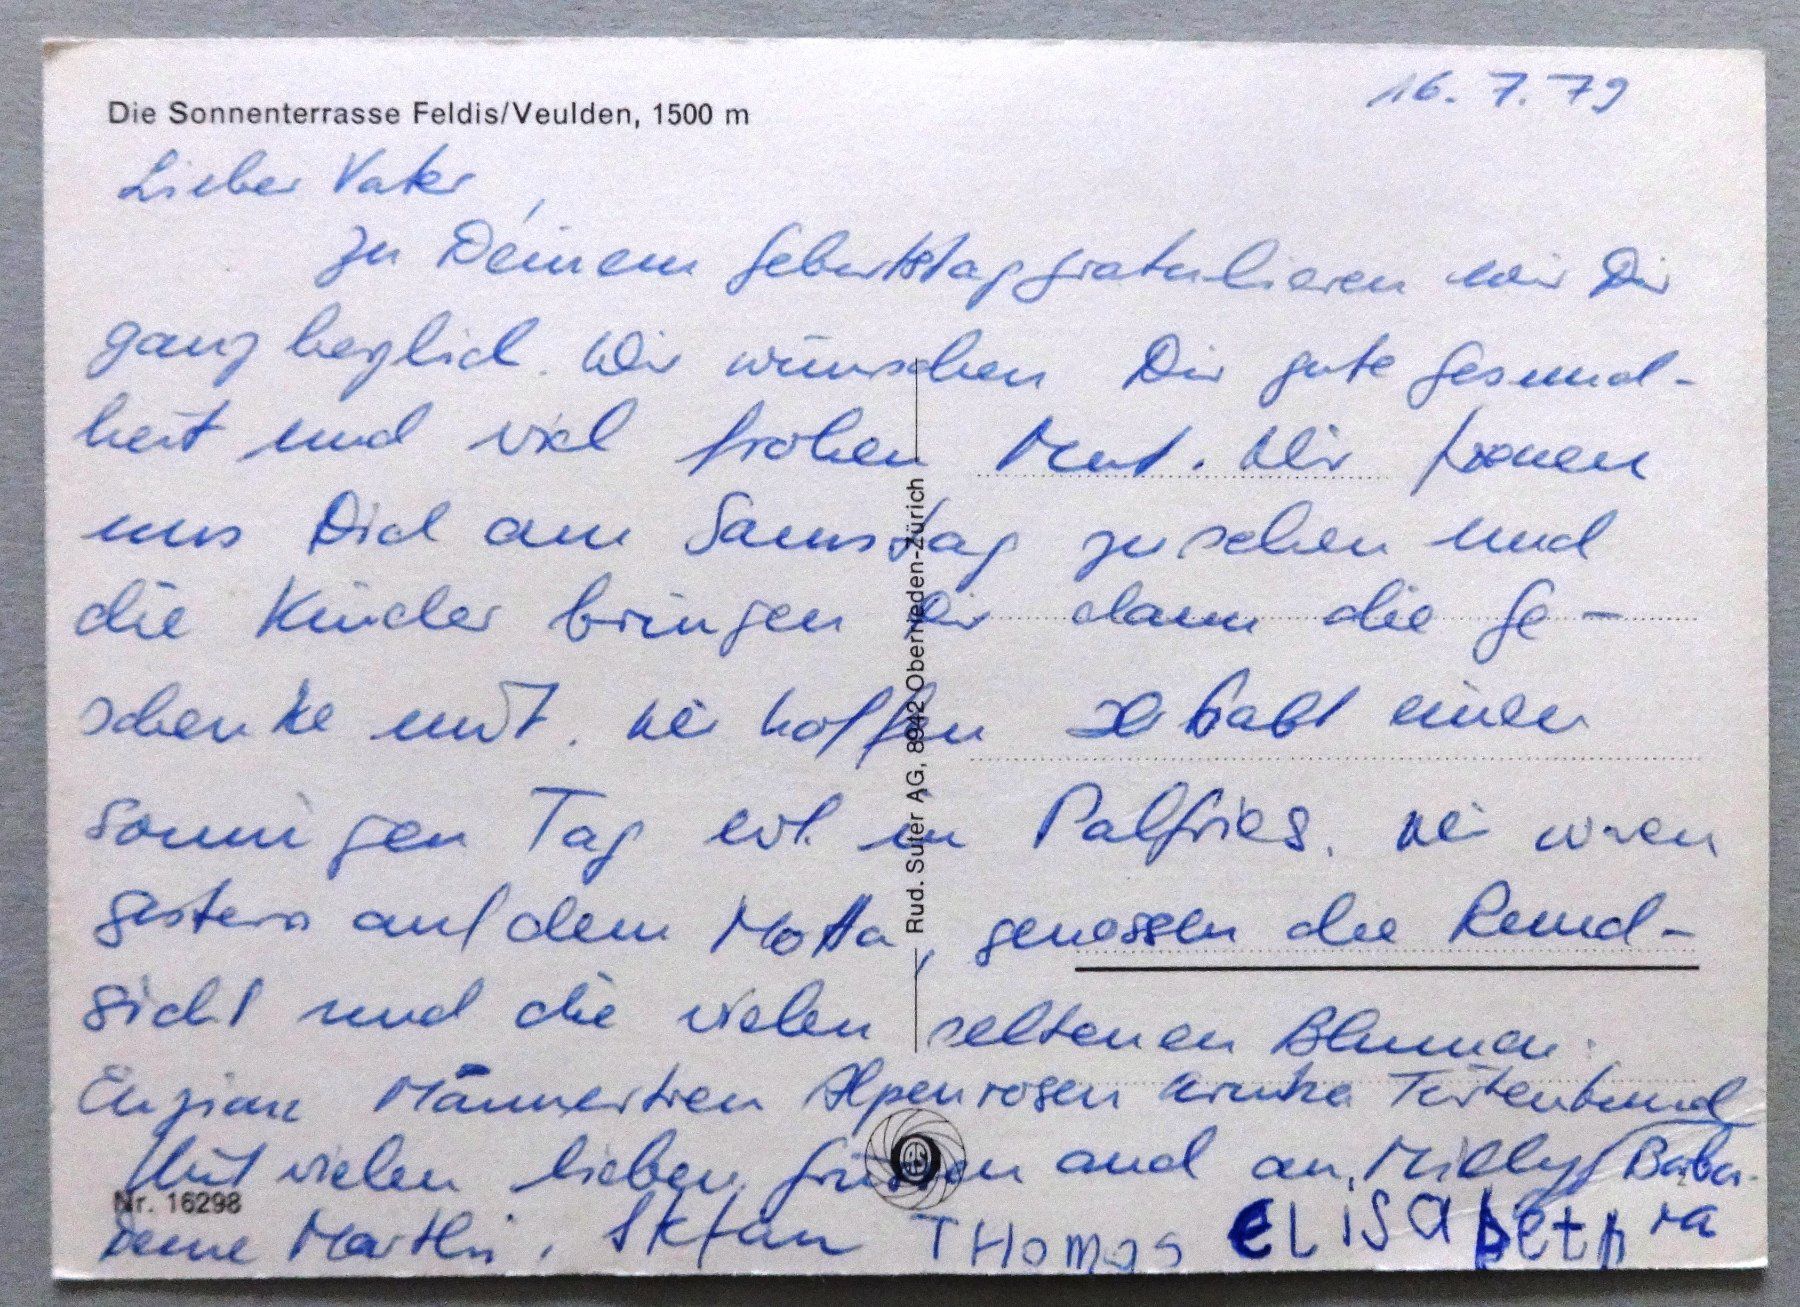 Die Sonnenterrasse Feldis/Veulden, 1500 m
16.7.79
Lieber Vater,
zu Deinem Geburtstag gratulieren wir Dir
ganz herzlich. Wir wünschen Dir gute Gesund-
heit und viel frohen Mut. Wir freuen
uns Dich am Samstag zu sehen und
die Kinder bringen Dir dann die Ge-
schenke mit. Wir hoffen Ihr habt einen
sonnigen Tag evt. in Palfries. Wir waren
gestern auf dem Motta, genossen die Rund-
sicht und die vielen seltenen Blumen:
Enzian Männertreu Alpenrosen Arnika
Mit vielen lieben Grüssen auch an Milly
Barba-
ra
Nr. 16298
Deine Marthi, Stefan THomas ELiSAbetH
Rud. Suter AG, 8942 Oberrieden-Zürich